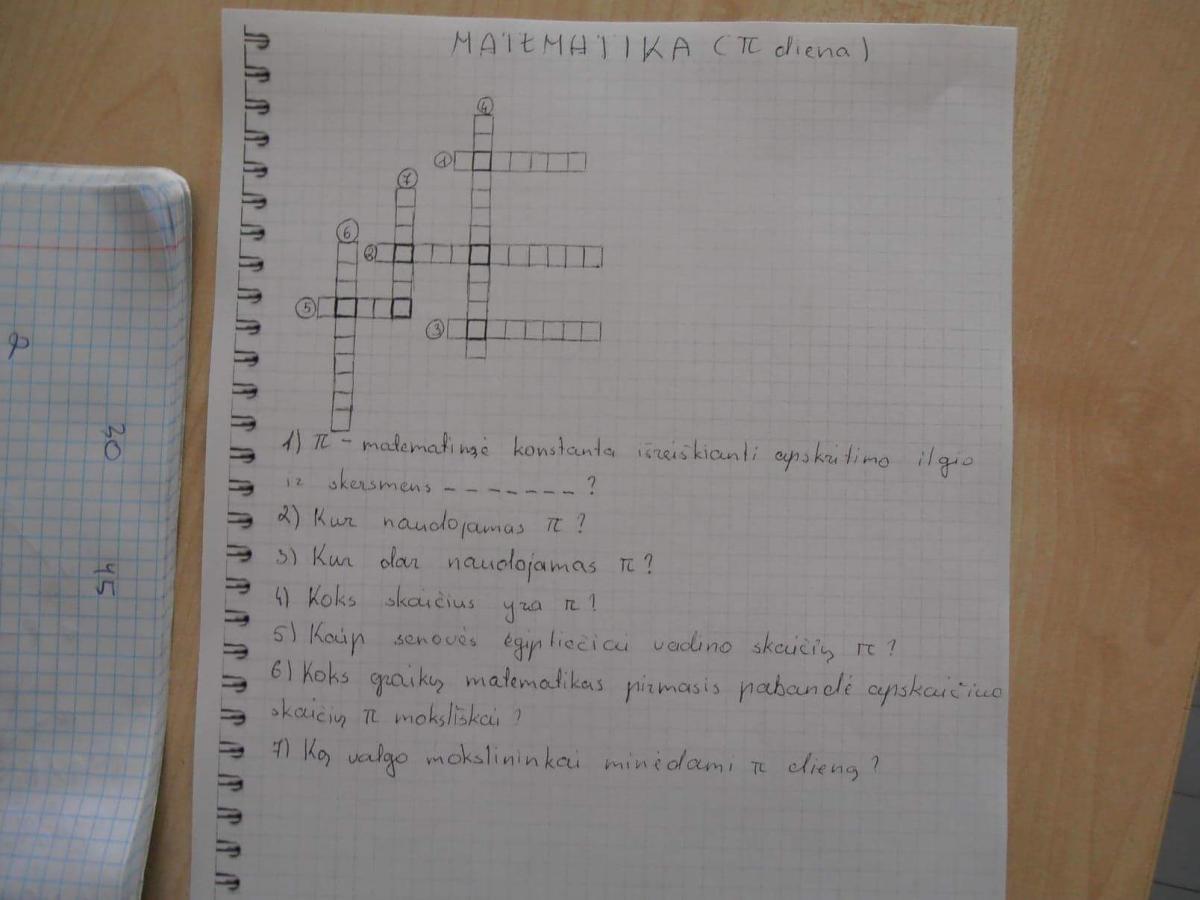 MATEMATIKA (π diena)
4
1
7
6
2
5
3
1) π - matematinė konstanta išreiškianti apskritimo ilgio
ir skersmens - - - - - - - ?
2) Kur naudojamas π ?
3) Kur dar naudojamas π ?
4) Koks skaičius yra π ?
5) Kaip senovės egiptiečiai vadino skaičių π ?
6) Koks graikų matematikas pirmasis pabandė apskaičiuo
skaičių π moksliškai ?
7) Ką valgo mokslininkai minėdami π dieną ?
2
30
45